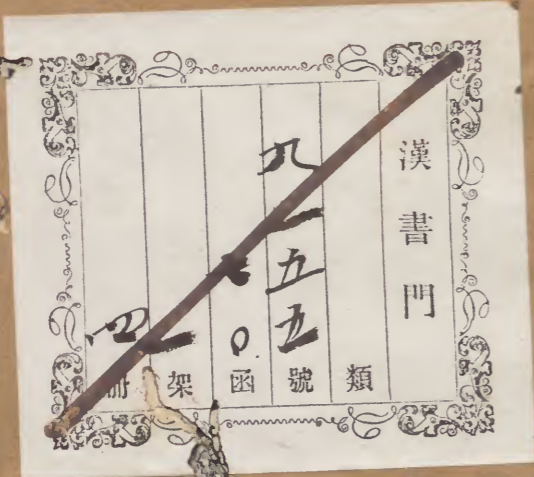 漢書門
類
九一五五號
〇函
一架
四冊